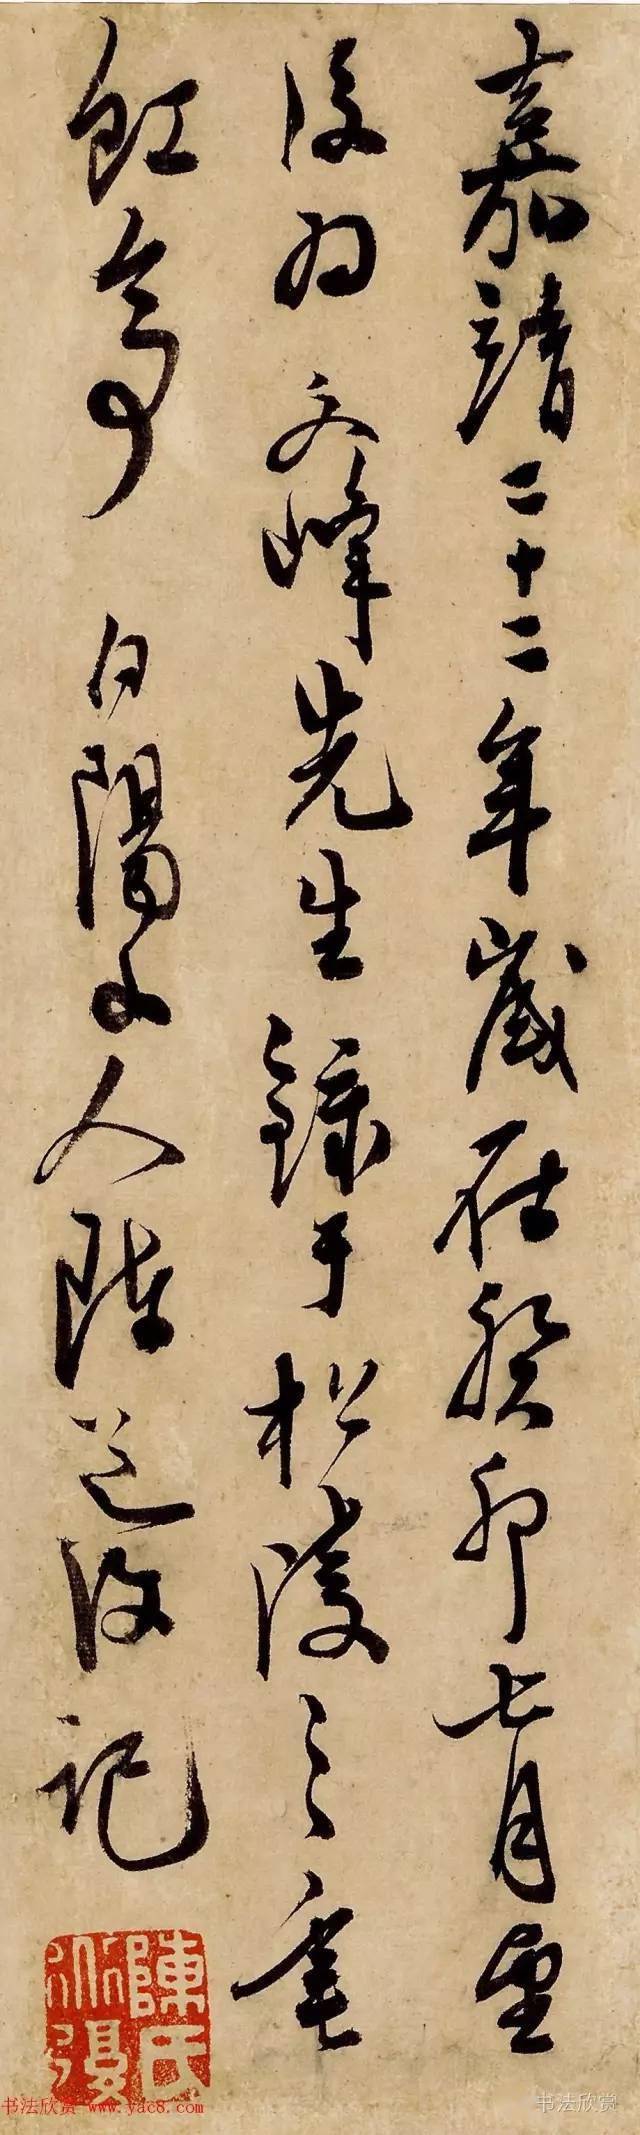 嘉靖二十二年歲在癸卯七月望
後為文峰先生錄于松陵之垂
虹亭 白陽山人陳道復記
陳氏道復
书法欣赏 www.yac8.com
书法欣赏